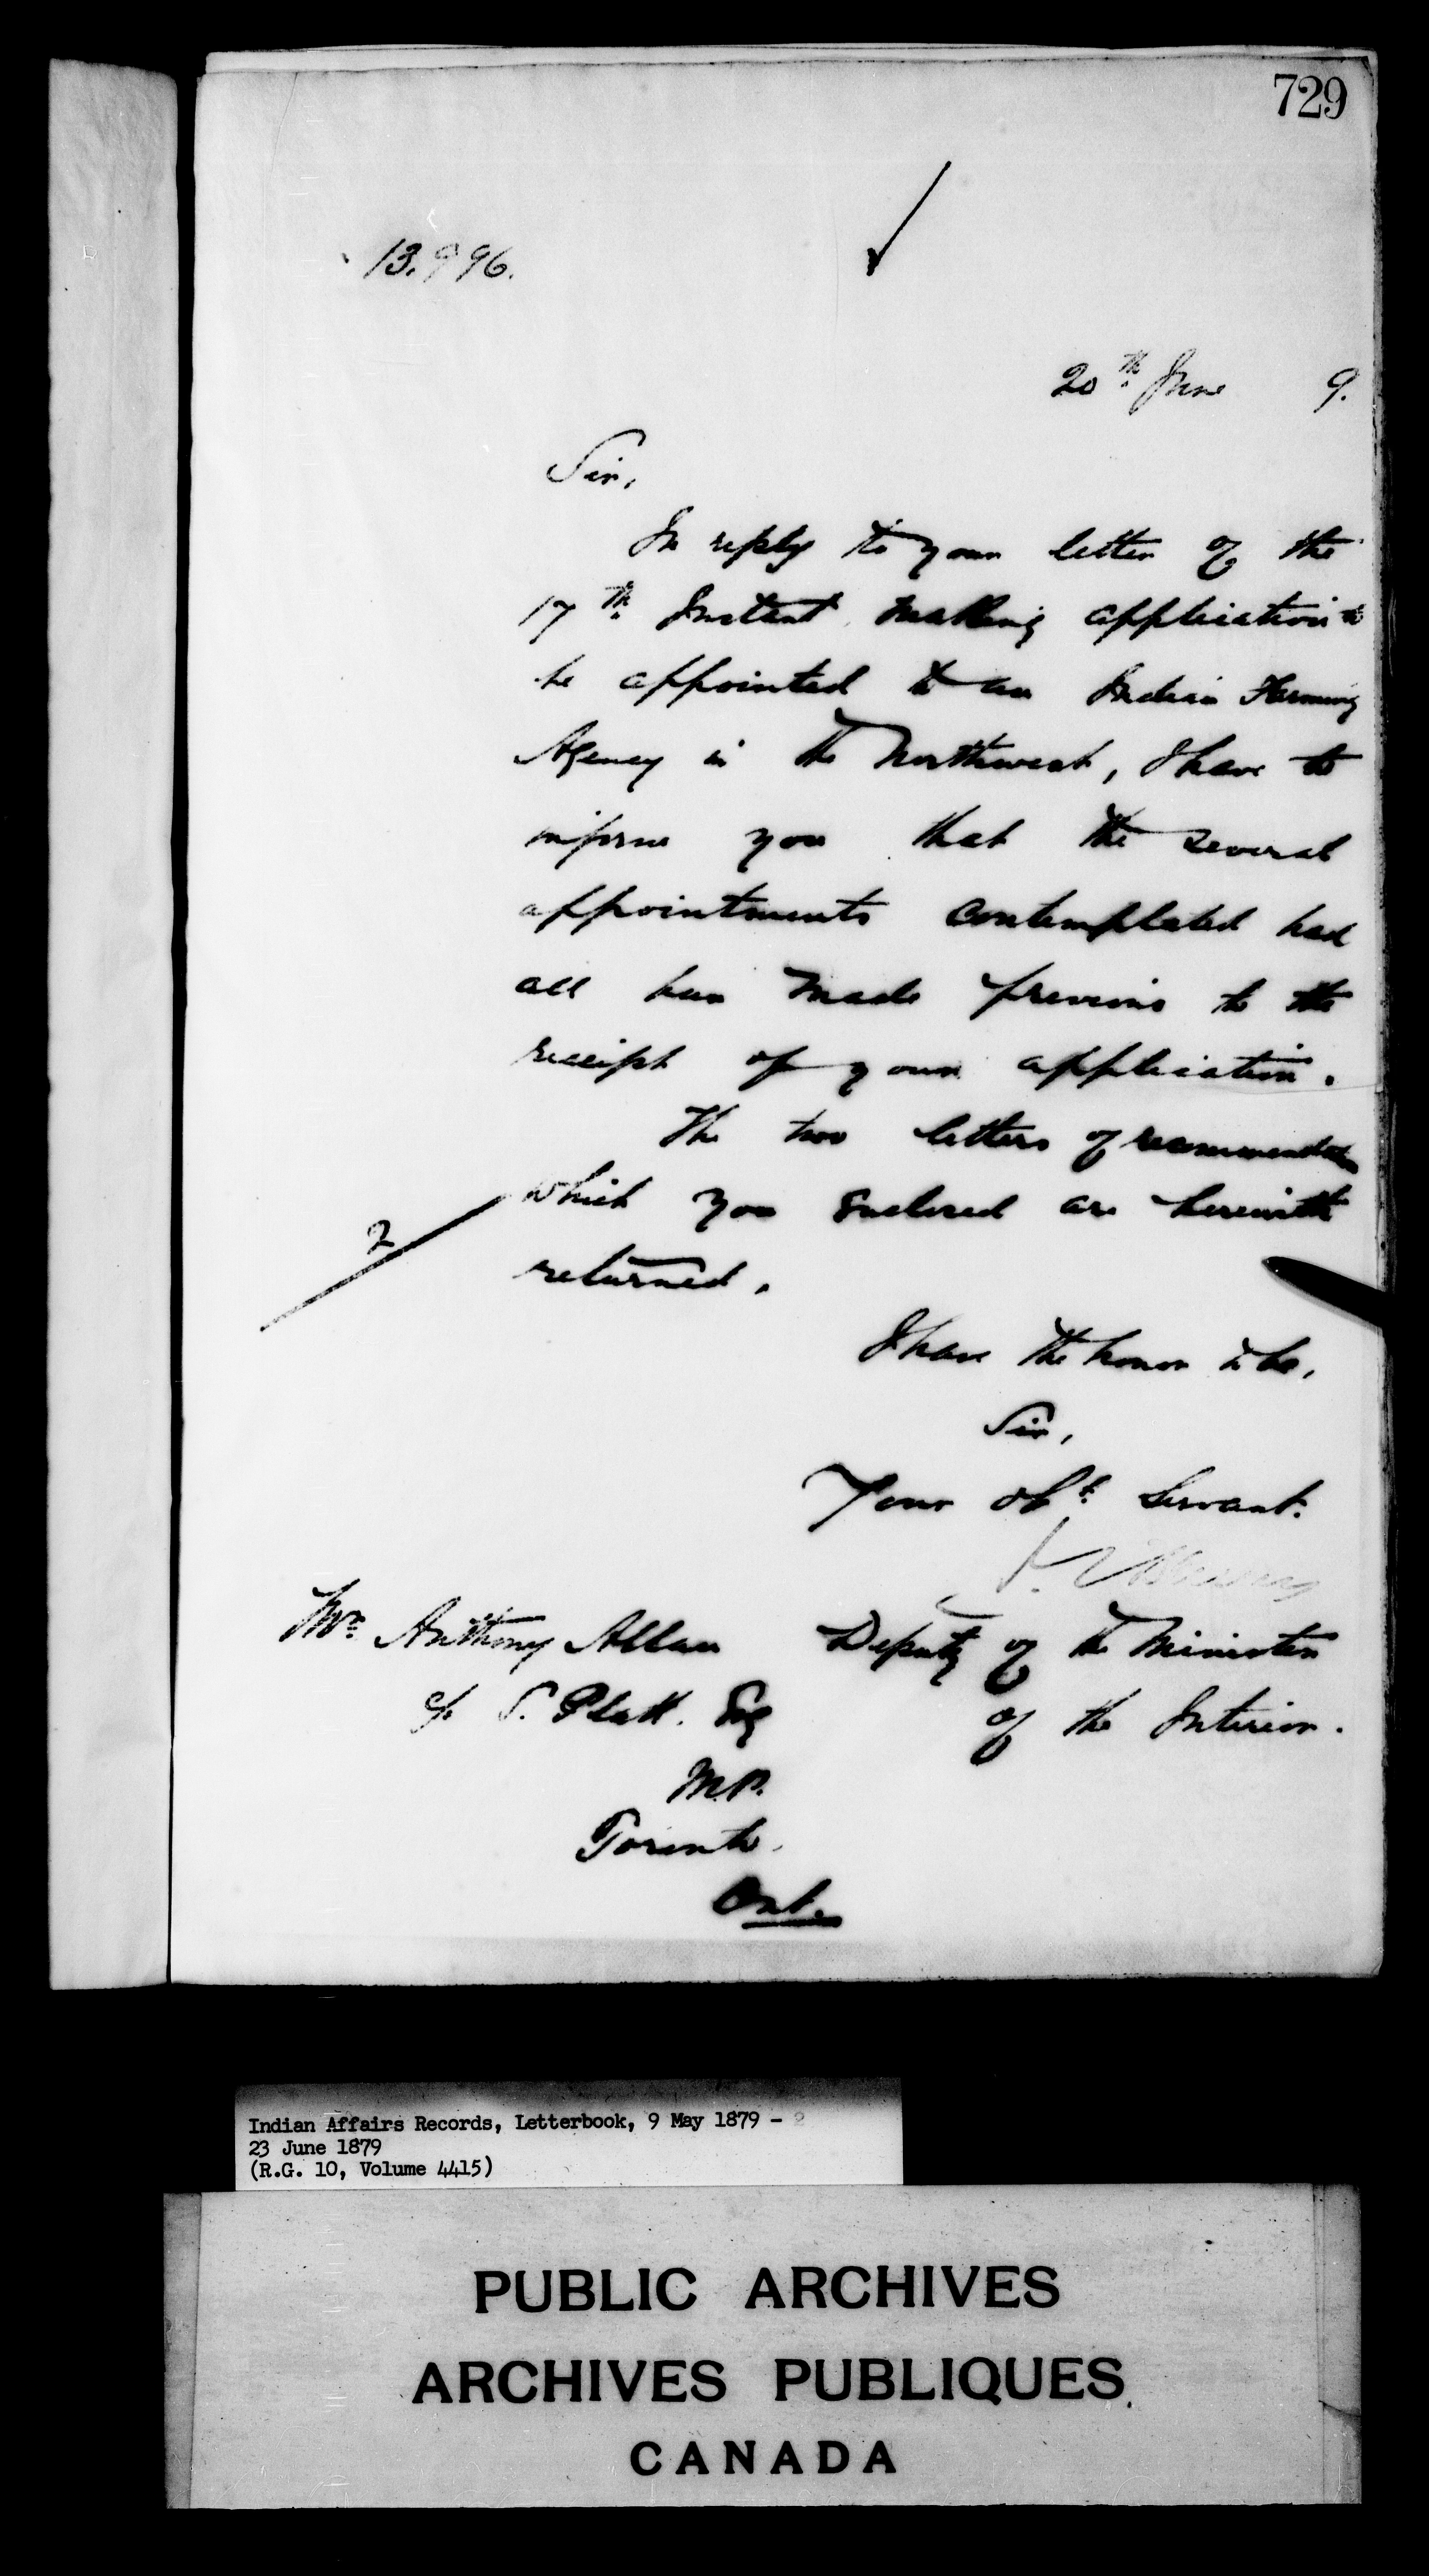 729
13.996.
20th June 9.
Sir,
In reply to your letter of the
17th Instant making application to
be appointed to an Indian Farming
Agency in the Northwest, I have to
inform you that the several
appointments contemplated had
all been made previous to the
receipt of your application.
The two letters of recommendation
which you enclosed are herewith
returned.
2
I have the honor to be,
Sir,
Your obt. Servant.
Mr. Anthony Allan
Deputy of the Minister
of the Interior.
c/o S. Platt. Esq
M.P.
Toronto.
Ont.
Indian Affairs Records, Letterbook, 9 May 1879 -
23 June 1879
(R.G. 10, Volume 4415)
PUBLIC ARCHIVES
ARCHIVES PUBLIQUES
CANADA